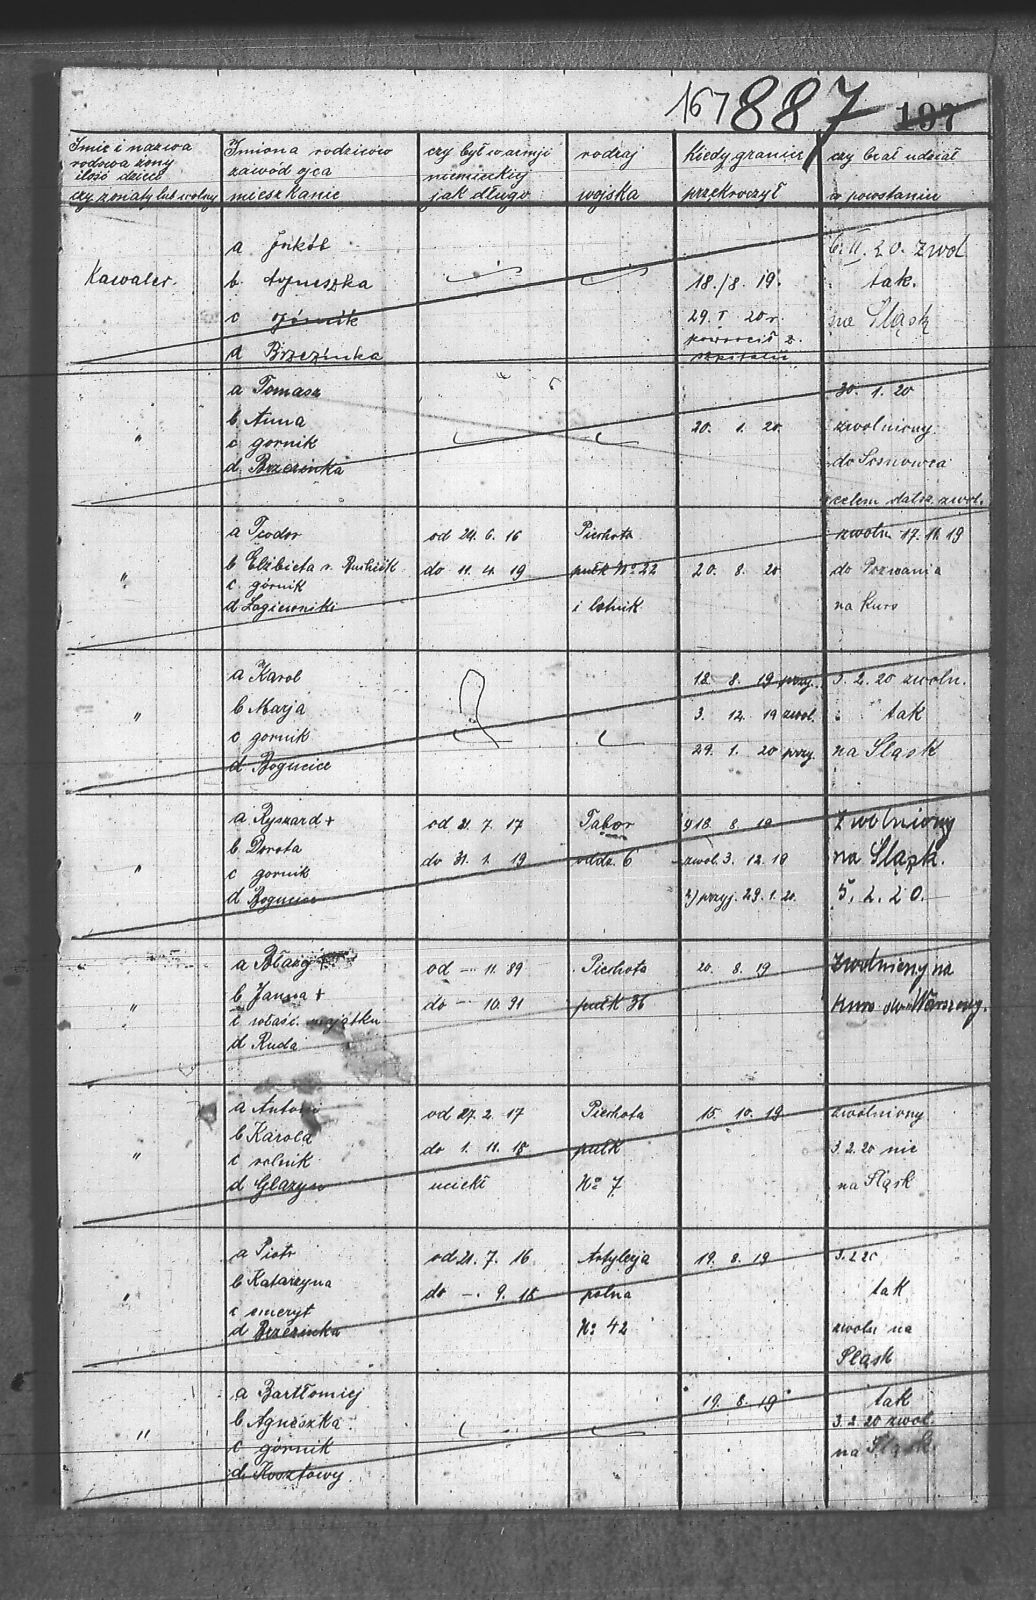 167 887 197
Imię i nazwa rodowa żony ilość dzieci czy żonaty lub wolny
Imiona rodziców zawód ojca mieszkanie
czy był w armji niemieckiej jak długo
rodzaj wojska
kiedy granicę przekroczył
czy brał udział w powstaniu
a Jakób
6. II. 20. zwol
Kawaler.
b Agnieszka
18./8. 19.
tak.
c górnik
29. I 20 r.
na Śląsk
powrócił z
d Brzezinka
szpitalu
a Tomasz
30. 1. 20
b Anna
20. 1. 20
zwolniony
"
c gornik
d Brzezinka
do Sosnowca
celem dalsz. zwol.
a Teodor
od 24. 6. 16
Piechota
zwoln 17. 11. 19
b Elżbieta r.
do 11. 4. 19
pułk No 22
20. 8. 20
do Poznania
"
c górnik
d Łagiewniki
i lotnik
na Kurs
a Karol
18. 8. 19 przy.
5. 2. 20 zwoln.
b Marja
3. 12. 19 zwol.
tak
"
c gornik
29. 1. 20 przy.
na Śląsk
d Bogucice
a Ryszard +
od 21. 7. 17
Tabor
1) 18. 8. 19
Zwolniony
b Dorota
do 31. 1. 19
oddz. 6
zwol. 3. 12. 19
na Śląsk.
"
c gornik
d Bogucice
2) przyj. 29. 1. 20.
5. 2. 20.
a Błażej
od — 11. 89
Piechota
20. 8. 19
zwolniony na
b Janna +
do — 10. 91
pułk 36
kurs
"
c właść. majątku
d Ruda
a Antoni
od 27. 2. 17
Piechota
15. 10. 19
zwolniony
b Karola
do 1. 11. 18
pułk
3. 2. 20 nie
"
c rolnik
d
uciekł
No 7
na Śląsk
a Piotr
od 21. 7. 16
Artylerja
19. 8. 19
3. 2 20
b Katarzyna
do —. 9. 18
polna
tak
"
c emeryt
d Brzezinka
No 42
zwoln na
Śląsk
a Bartłomiej
19. 8. 19
tak
b Agnieszka
3. 2. 20 zwol.
"
c górnik
na Śląsk.
d Kosztowy